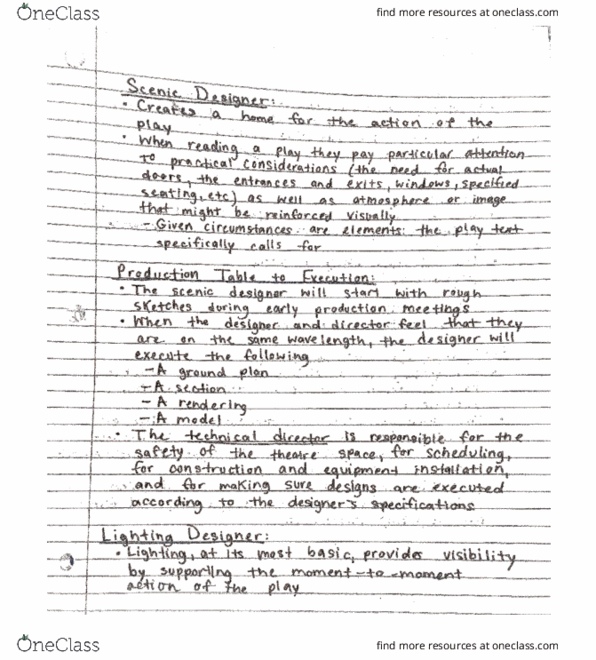 OneClass
find more resources at oneclass.com
Scenic Designer:
• Creates a home for the action of the
play
• When reading a play they pay particular attention
to practical considerations (the need for actual
doors, the entrances and exits, windows, specified
seating, etc) as well as atmosphere or image
that might be reinforced visually
- Given circumstances are elements the play text
specifically calls for
Production Table to Execution:
• The scenic designer will start with rough
sketches during early production meetings
• When the designer and director feel that they
are on the same wavelength, the designer will
execute the following
- A ground plan
- A section
- A rendering
- A model
• The technical director is responsible for the
safety of the theatre space, for scheduling,
for construction and equipment installation,
and for making sure designs are executed
according to the designer's specifications
Lighting Designer:
• Lighting, at its most basic, provides visibility
by supporting the moment-to-moment
action of the play
OneClass
find more resources at oneclass.com